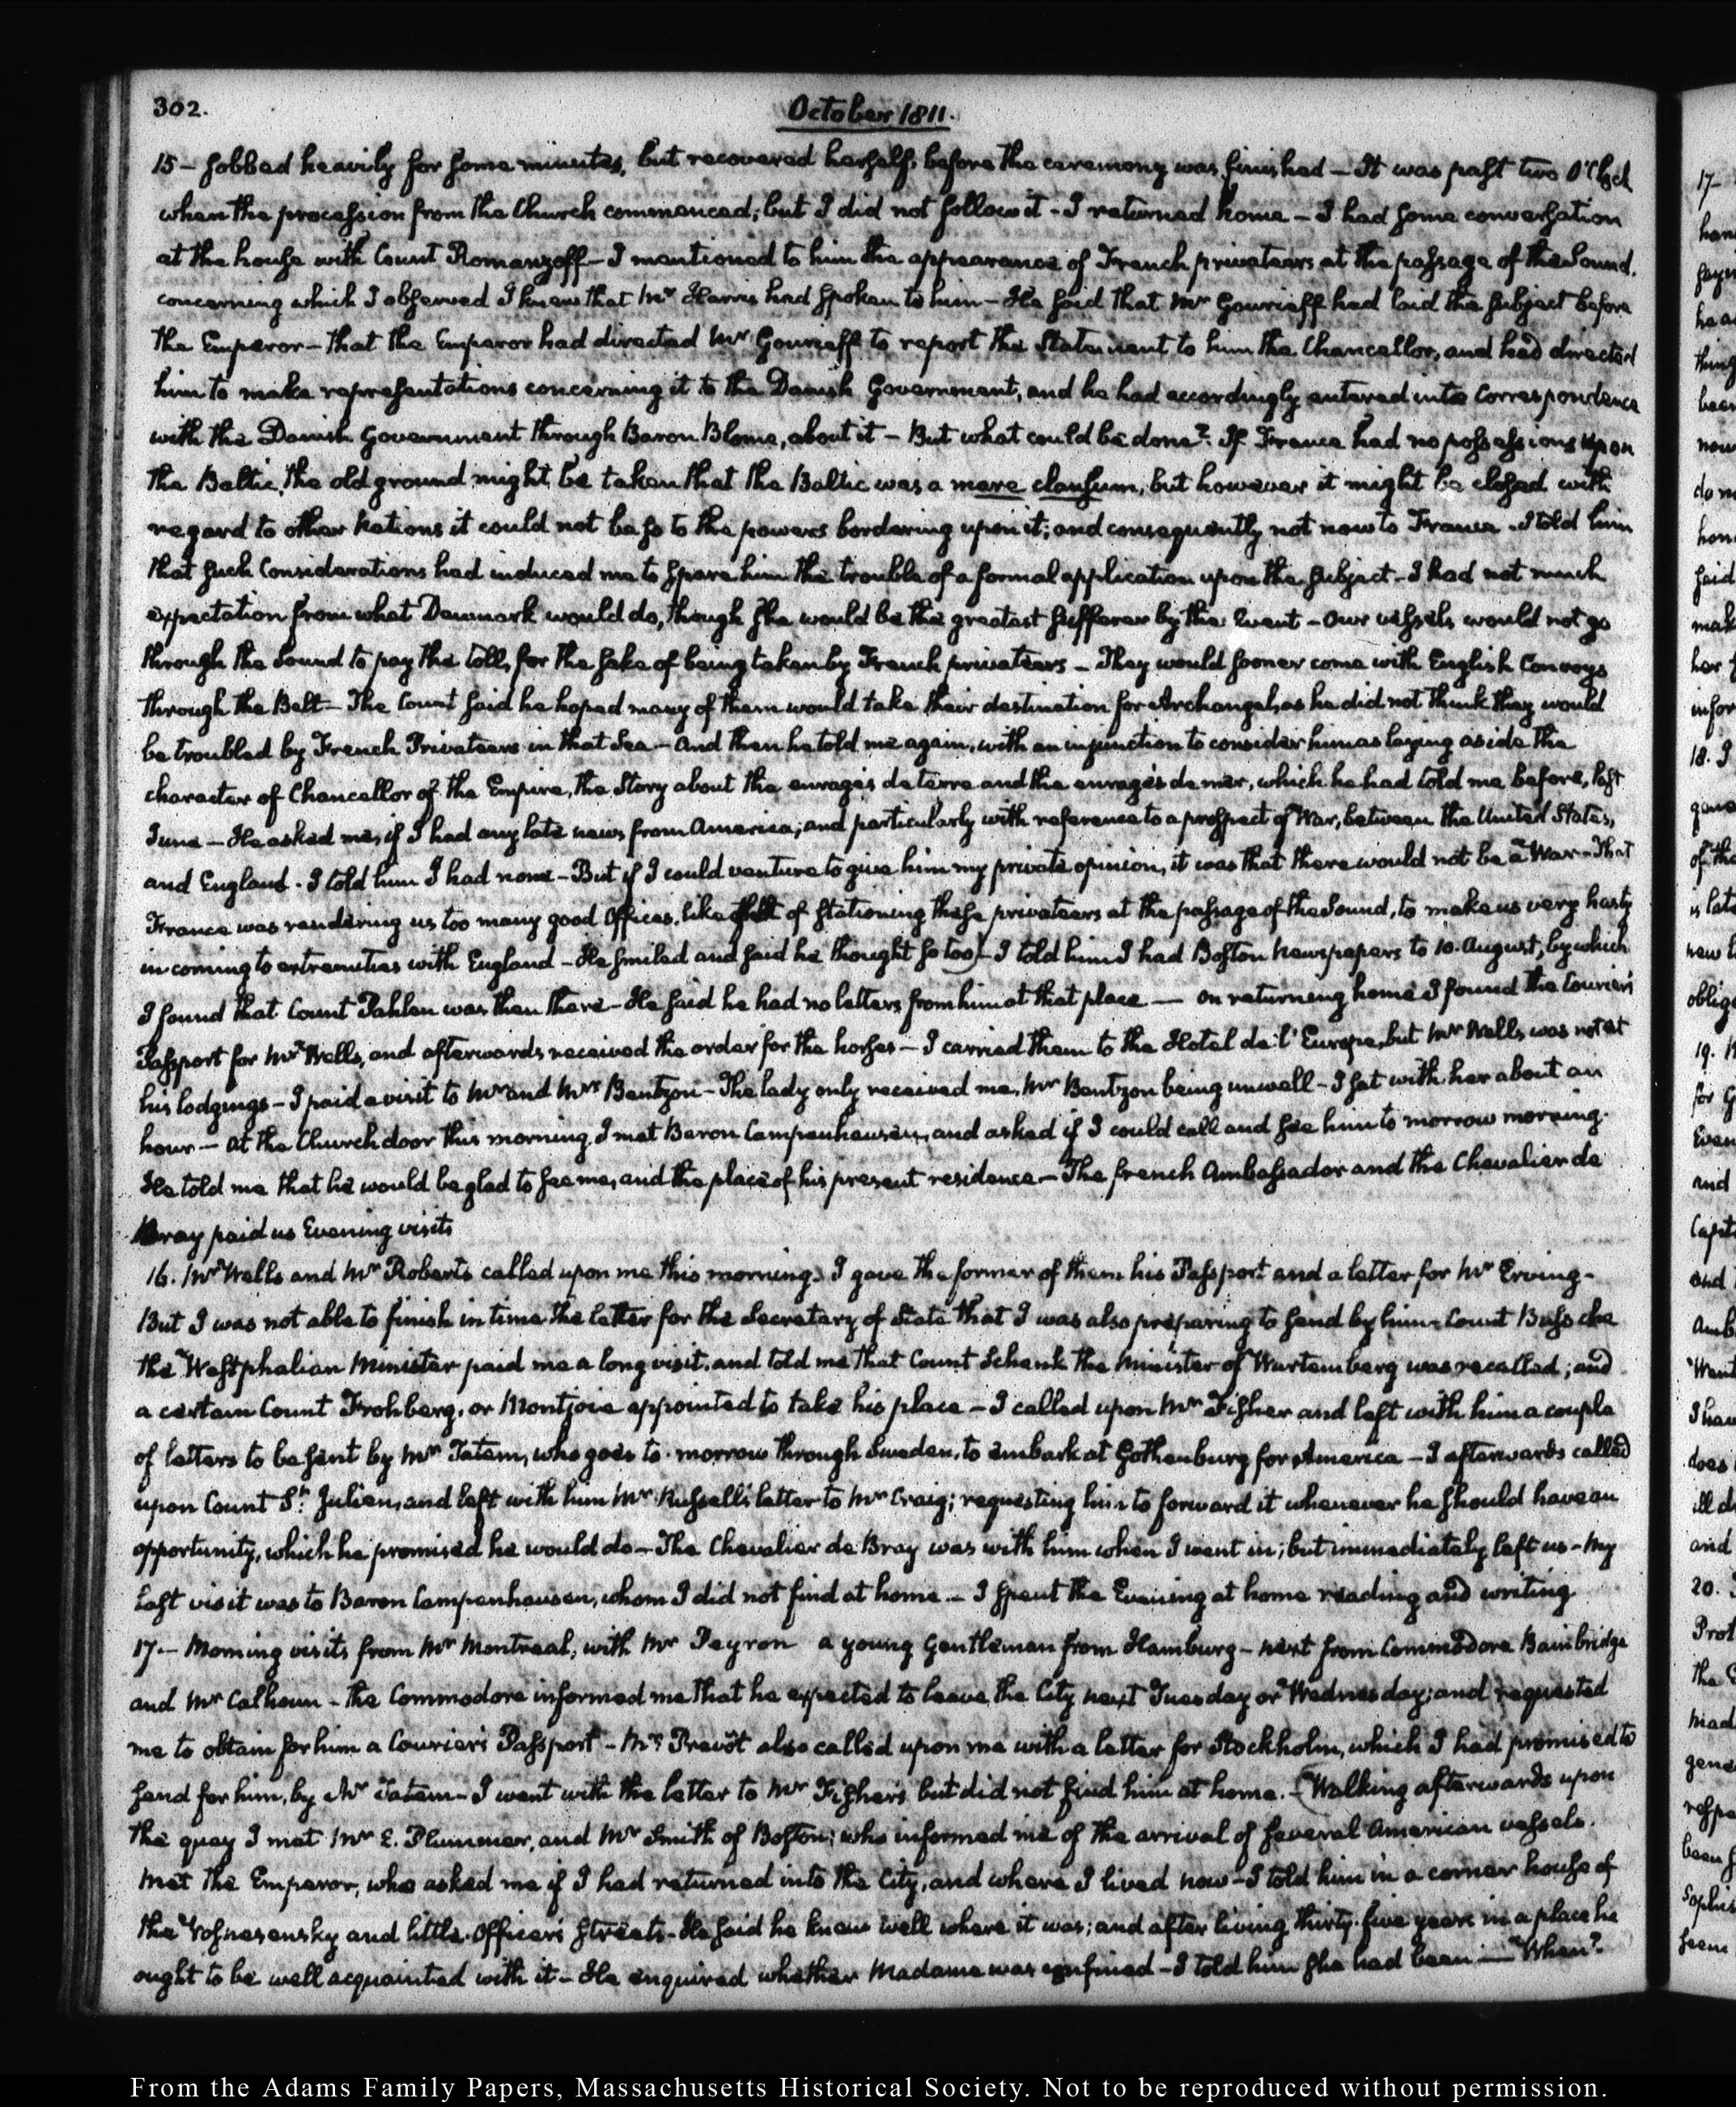 302.
October 1811.
15 – sobbed heavily for some minutes, but recovered herself, before the ceremony was finished – It was past two O'Clock
when the procession from the Church commenced; but I did not follow it – I returned home – I had some conversation
at the house with Count Romanzoff – I mentioned to him the appearance of French privateers at the passage of the Sound,
concerning which I observed I knew that Mr Harris had spoken to him – He said that Mr Gourieff had laid the subject before
the Emperor – that the Emperor had directed Mr Gourieff to report the Statement to him the Chancellor, and had directed
him to make representations concerning it to the Danish Government, and he had accordingly entered into Correspondence
with the Danish Government through Baron Blome, about it – But what could be done? If France had no possessions upon
the Baltic, the old ground might be taken that the Baltic was a mare clausum, but however it might be closed with
regard to other Nations it could not be so to the powers bordering upon it; and consequently not now to France – I told him
that such Considerations had induced me to spare him the trouble of a formal application upon the subject – I had not much
expectation from what Denmark would do, though she would be the greatest sufferer by the Event – Our vessels would not go
through the Sound to pay the toll, for the sake of being taken by French privateers – They would sooner come with English Convoys
through the Belt – The Count said he hoped many of them would take their destination for Archangel, as he did not think they would
be troubled by French Privateers in that Sea – And then he told me again, with an injunction to consider him as laying aside the
character of Chancellor of the Empire, the Story about the enragés de terre and the enragés de mer, which he had told me before, last
June – He asked me, if I had any late news from America; and particularly with reference to a prospect of War, between the United States,
and England. I told him I had none – But if I could venture to give him my private opinion, it was that there would not be a War – That
France was rendering us too many good Offices, like that of stationing these privateers at the passage of the Sound, to make us very hasty
in coming to extremities with England – He smiled and said he thought so too) – I told him I had Boston Newspapers to 10. August, by which
I found that Count Pahlen was then there – He said he had no letters from him at that place — On returning home I found the Courier's
Passport for Mr Wells, and afterwards received the order for the horses – I carried them to the Hotel de l'Europe, but Mr Wells was not at
his lodgings – I paid a visit to Mr and Mrs Bentzon – The lady only received me, Mr Bentzon being unwell – I sat with her about an
hour – At the Church door this morning, I met Baron Campenhausen, and asked if I could call and see him to morrow morning.
He told me that he would be glad to see me, and the place of his present residence – The french Ambassador and the Chevalier de
Bray paid us Evening visits
16. Mr Wells and Mr Roberts called upon me this morning. I gave the former of them his Passport and a letter for Mr Erving –
But I was not able to finish in time the letter for the Secretary of State that I was also preparing to send by him – Count Bussche
the Westphalian Minister paid me a long visit, and told me that Count Schenk the Minister of Wurtemberg was recalled; and
a certain Count Frohberg, or Montjoie appointed to take his place – I called upon Mr Fisher and left with him a couple
of letters to be sent by Mr Tatem, who goes to-morrow through Sweden, to embark at Gothenburg for America – I afterwards called
upon Count St. Julien, and left with him Mr Russell's letter to Mr Craig; requesting him to forward it whenever he should have an
opportunity, which he promised he would do – The Chevalier de Bray was with him when I went in; but immediately left us – My
last visit was to Baron Campenhausen, whom I did not find at home – I spent the Evening at home reading and writing
17. – Morning visits from Mr Montreal, with Mr Peyron a young Gentleman from Hamburg – next from Commodore Bainbridge
and Mr Calhoun – the Commodore informed me that he expected to leave the City next Tuesday or Wednesday; and requested
me to obtain for him a Courier's Passport – Mr Prevôt also called upon me with a letter for Stockholm, which I had promised to
send for him, by Mr Tatem – I went with the letter to Mr Fisher's but did not find him at home. – (Walking afterwards upon
the quay I met Mr E. Plummer, and Mr Smith of Boston; who informed me of the arrival of several American vessels.
Met the Emperor, who asked me if I had returned into the City, and where I lived now – I told him in a corner house of
the Vosnesensky and little Officer's streets – He said he knew well where it was; and after living thirty-five years in a place he
ought to be well acquainted with it – He enquired whether Madame was confined – I told him she had been — "When?
From the Adams Family Papers, Massachusetts Historical Society. Not to be reproduced without permission.